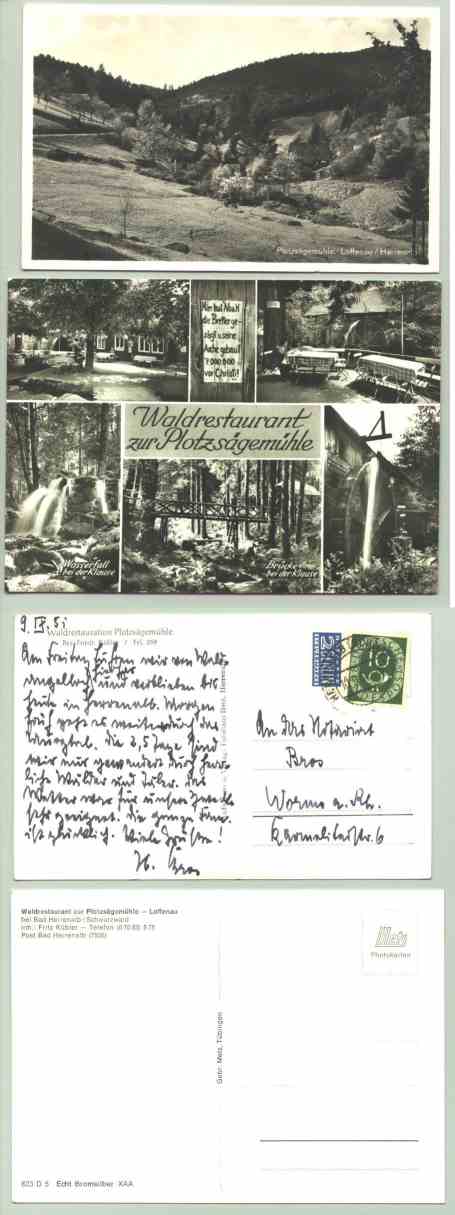 Plotzsägemühle, Loffenau / Herrenalb
Hier hat Noah
die Bretter ge-
sägt u. seine
Arche gebaut
7 000 000
vor Christi!
Waldrestaurant
zur Plotzsägemühle
Wasserfall
bei der Klause
Brücke
bei der Klause
9. IX. 51
Waldrestauration Plotzsägemühle
Bes. Friedr. Kübler / Tel.
Am Freitag fuhren wir von Wald-
und verblieben bis
heute in Herrenalb. Morgen
früh geht es weiter durch das
Die 2,5 Tage sind
wir nur gewandert durch herr-
liche Wälder und Täler. Das
Wetter war für unsere Zwecke
sehr geeignet. Die ganze Fam.
ist glücklich. Viele Grüsse!
H. Bros
2 NOTOPFER
BERLIN
10
An das Notariat
Bros
Worms a. Rh.
Karmeliterstr. 6
Waldrestaurant zur Plotzsägemühle – Loffenau
bei Bad Herrenalb/Schwarzwald
Inh.: Fritz Kübler – Telefon (07083) 878
Post Bad Herrenalb (7506)
Metz
Photokarten
Gebr. Metz, Tübingen
623 D 5 Echt Bromsilber XAA